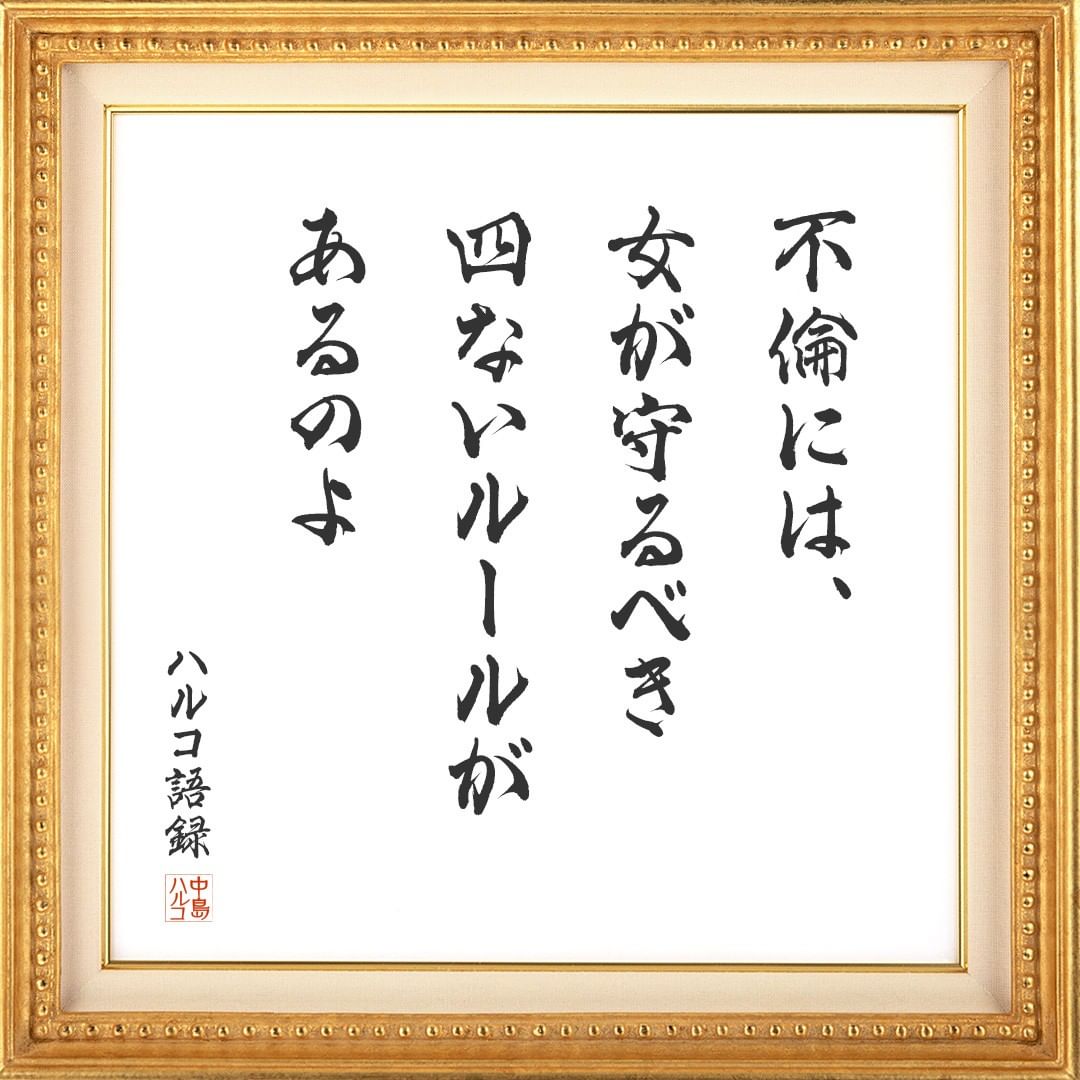 不倫には、
女が守るべき
四ないルールが
あるのよ
ハルコ語録
中島
ハルコ